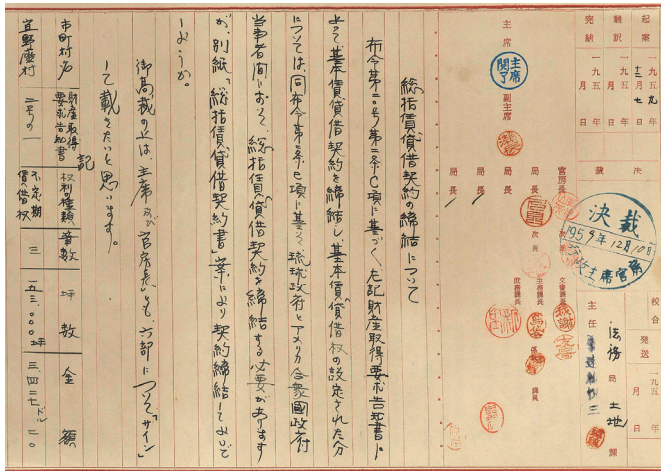 起案 一九五九年十二月七日
翻訳 一九五 年 月 日
完納 一九五 年 月 日
決裁
決裁
1959年12月10日
行政主席官房
校合
発送 一九五 年 月 日
法務局 土地課
主任
主席
主席閲了
副主席
官房長
局長
局長
局長
局長
次長
文書課長
主務課長
庶務課長
係長
課員
総括賃貸借契約の締結について
布令第二〇号第二条C項に基づく、左記財産取得要求告知書に
よつて基本賃貸借契約を締結し、基本賃貸借権の設定された分
については同布令第二条C項に基き琉球政府とアメリカ合衆国政府
当事者間において、総括賃貸借契約を締結する必要があります
が、別紙「総括賃貸借契約書」案により契約締結してよいで
しようか。
御高裁の上は、主席及び官房長とも六部について「サイン」
して戴きたいと思います。
記
市町村名 財産取得要求告知書 権利の種類 筆数 坪数 金額
宜野座村 二号の一 不定期賃借権 三 一五三.〇〇〇坪 三四二七ドル二〇